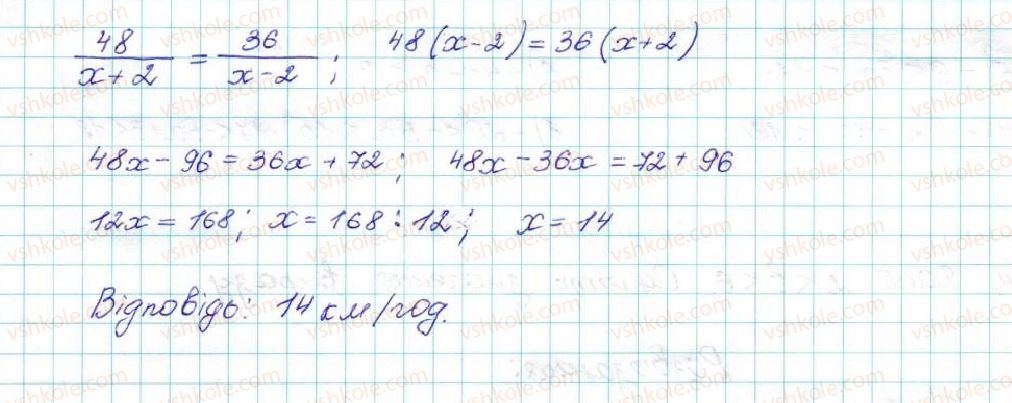 48/(x+2) = 36/(x-2); 48(x-2)=36(x+2)
48x-96=36x+72; 48x-36x=72+96
12x=168; x=168:12; x=14
Відповідь: 14 км/год.
vshkole.com